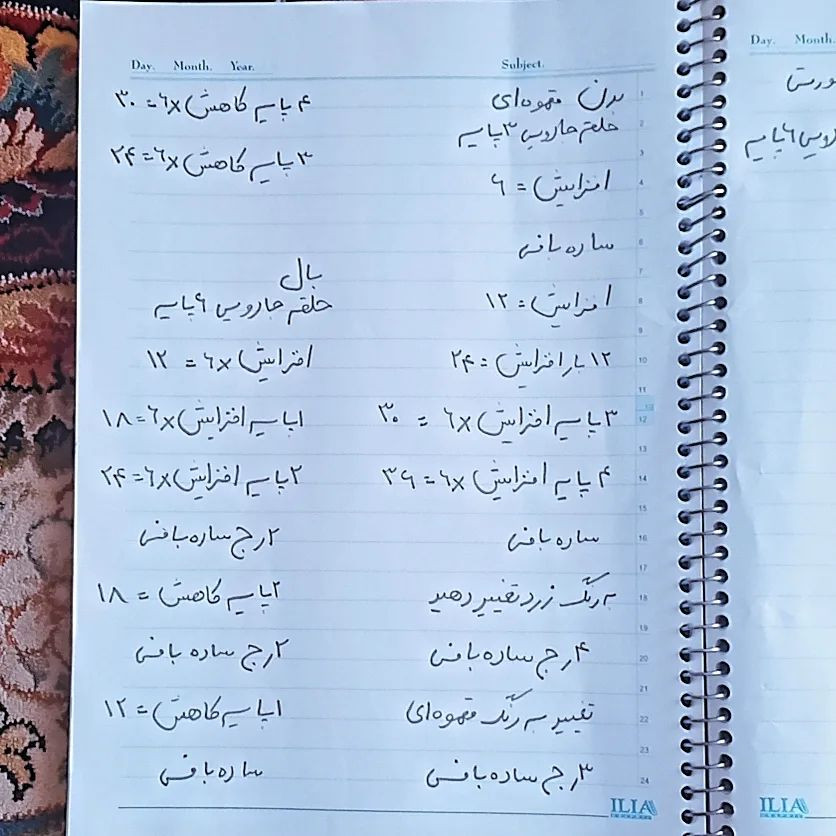 Day. Month. Year. Subject.
بدن قهوه‌ای
حلقه جادویی ۳ پایه
افزایش = ۶
ساده بافی
افزایش = ۱۲
۱۲ بار افزایش = ۲۴
۳ پایه افزایش ۶x = ۳۰
۴ پایه افزایش ۶x = ۳۶
ساده بافی
به رنگ زرد تغییر دهید
۴ رج ساده بافی
تغییر به رنگ قهوه‌ای
۳ رج ساده بافی
۴ پایه کاهش ۶x = ۳۰
۳ پایه کاهش ۶x = ۲۴
بال
حلقه جادویی ۶ پایه
افزایش ۶x = ۱۲
۱ پایه افزایش ۶x = ۱۸
۲ پایه افزایش ۶x = ۲۴
۲ رج ساده بافی
۲ پایه کاهش = ۱۸
۲ رج ساده بافی
۱ پایه کاهش = ۱۲
ساده بافی
1
2
3
4
5
6
7
8
9
10
11
12
13
14
15
16
17
18
19
20
21
22
23
24
ILIA
GRAPHIC
Day. Month.
۶ پایه
ILIA
GRAPHIC